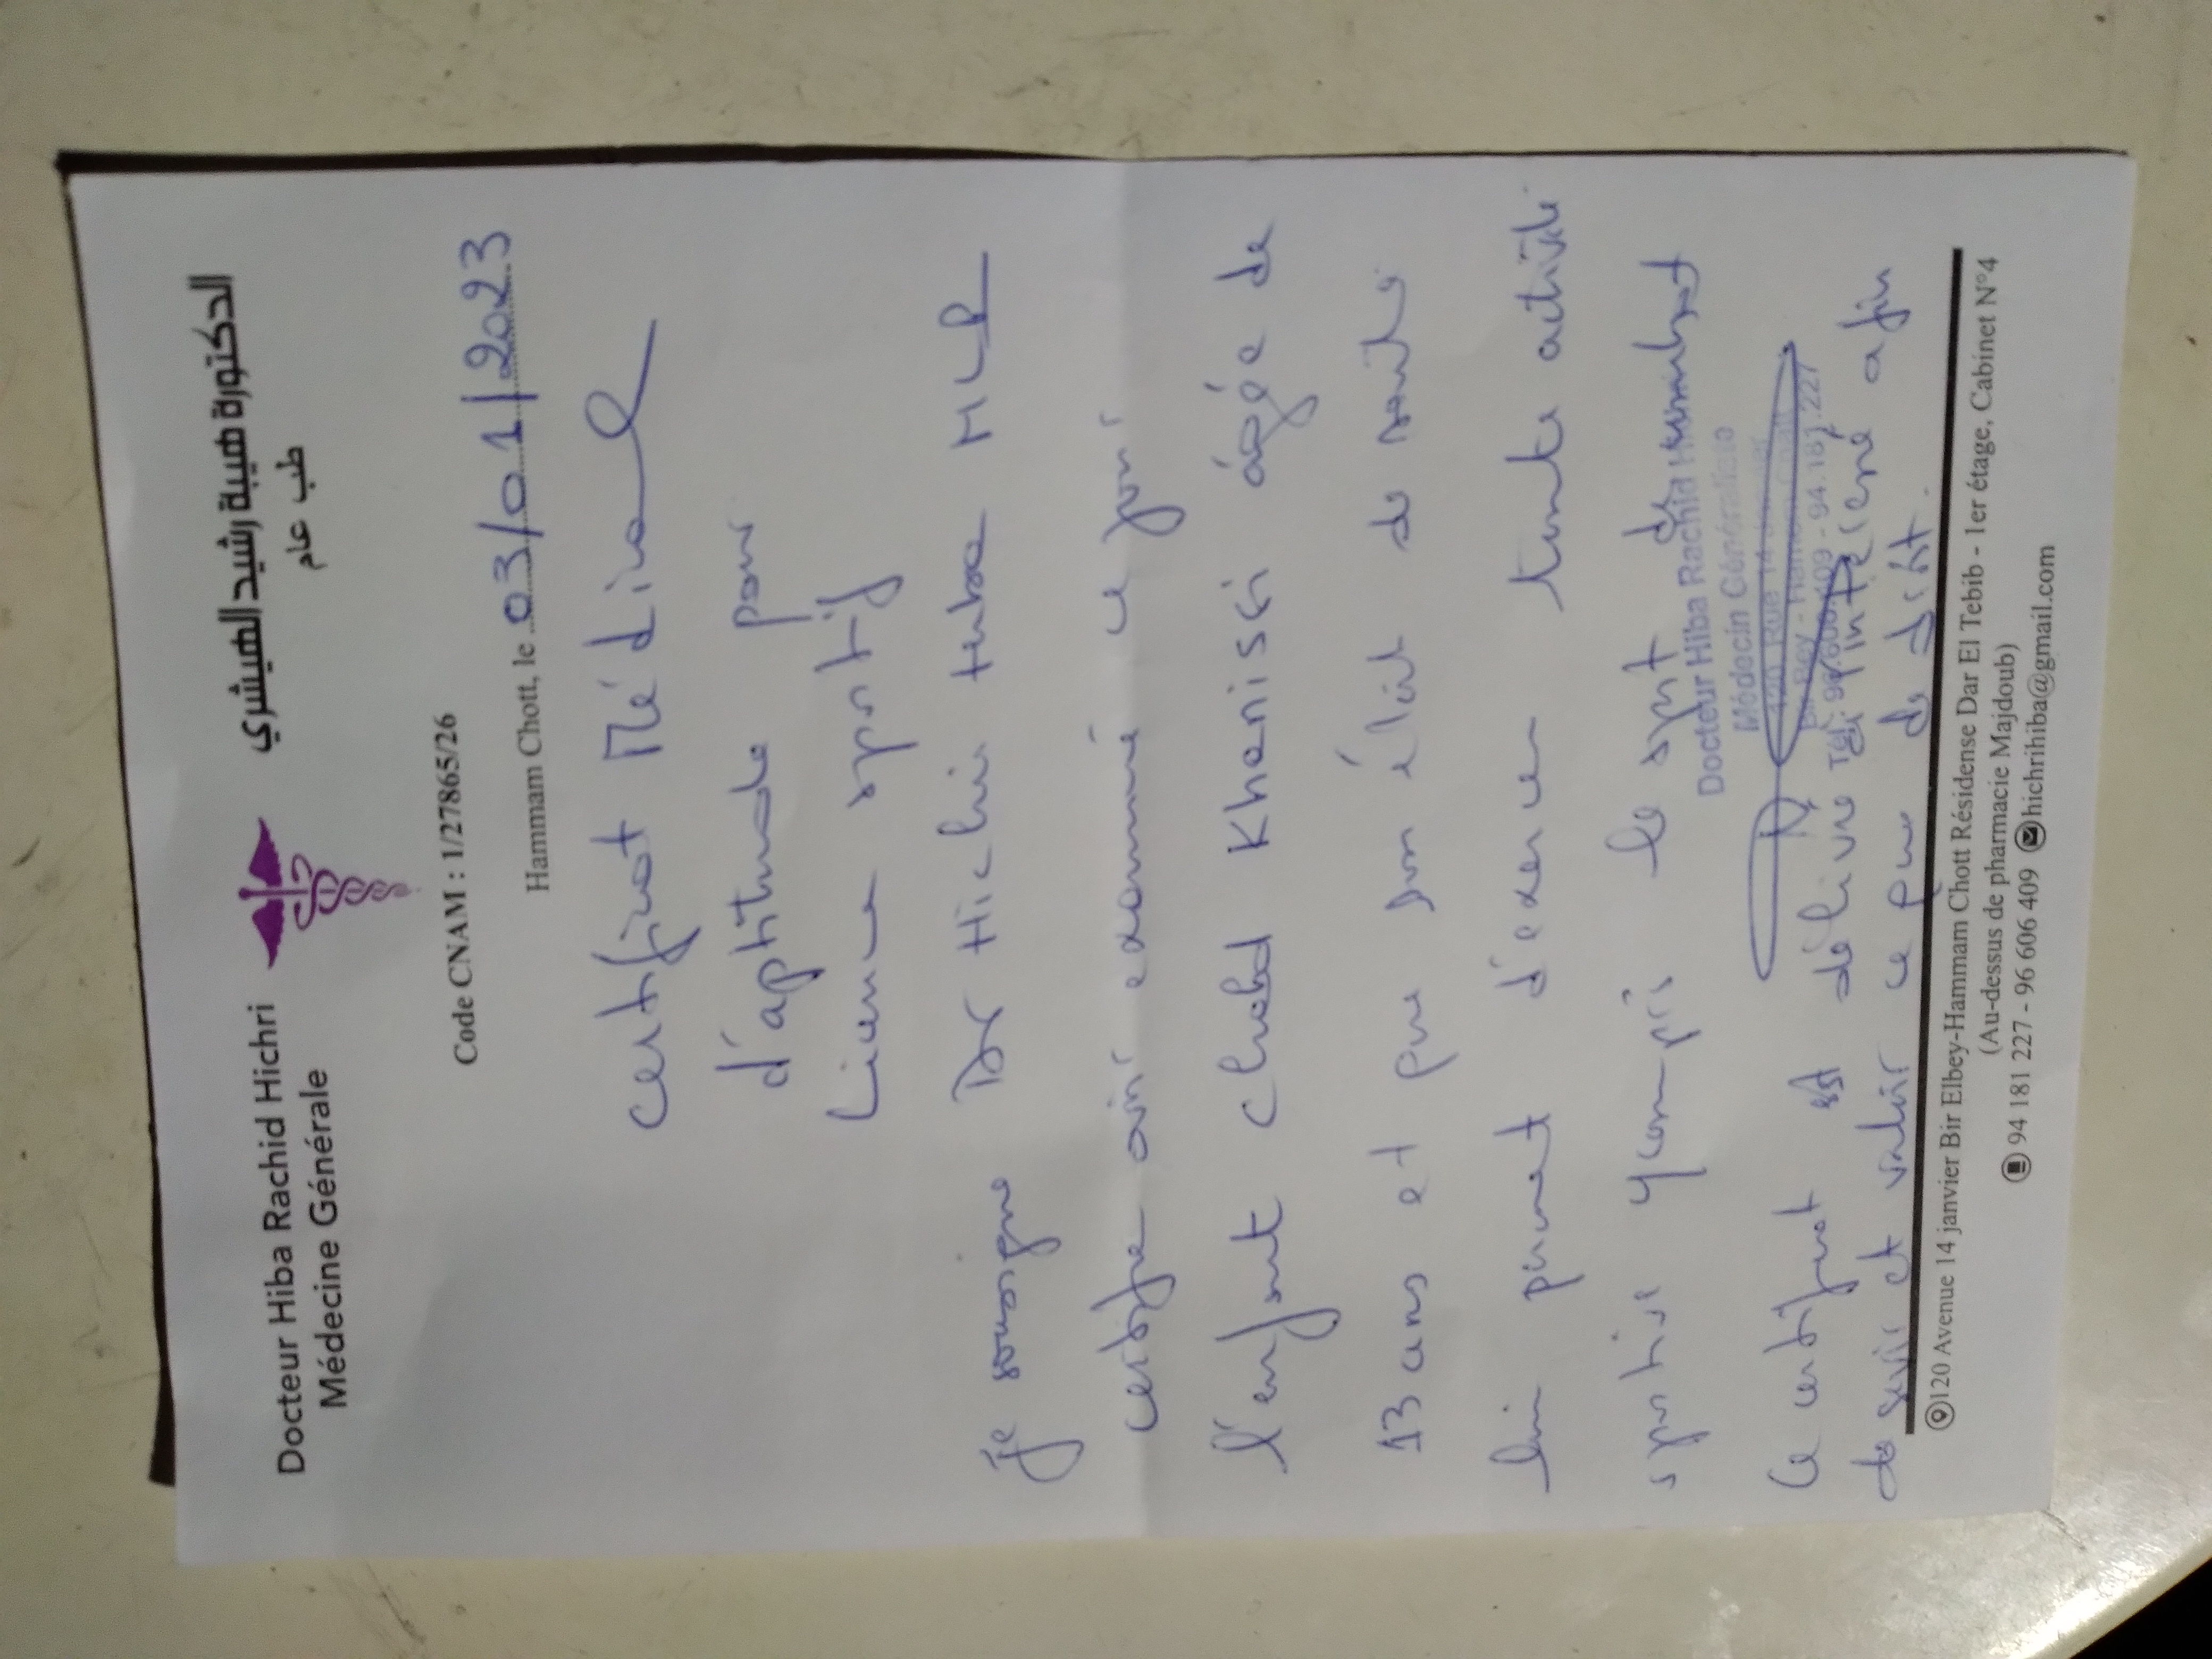 Docteur Hiba Rachid Hichri
Médecine Générale
الدكتورة هيبة رشيد الهيشري
طب عام
Code CNAM : 1/27865/26
Hammam Chott, le 03/01/2023
Certificat Médical
d'aptitude pour
Licence sportif
je soussigne Dr Hichri Hiba
certifie avoir examiné ce jour
l'enfant Chahd Khenissi âgée de
13 ans et que son état de santé
lui permet d'exercer toute activité
sportive y compris le sport de combat
Docteur Hiba Rachid
Médecin Généraliste
120 Rue 14
Bir Bey - Hammam Chatt
Tél: 96.606.409 - 94.181.227
Ce certificat est délivré à l'intéressé afin
de servir et valoir ce que de droit.
120 Avenue 14 janvier Bir Elbey-Hammam Chott Résidense Dar El Tebib - 1er étage, Cabinet N°4
(Au-dessus de pharmacie Majdoub)
94 181 227 - 96 606 409 hichrihiba@gmail.com